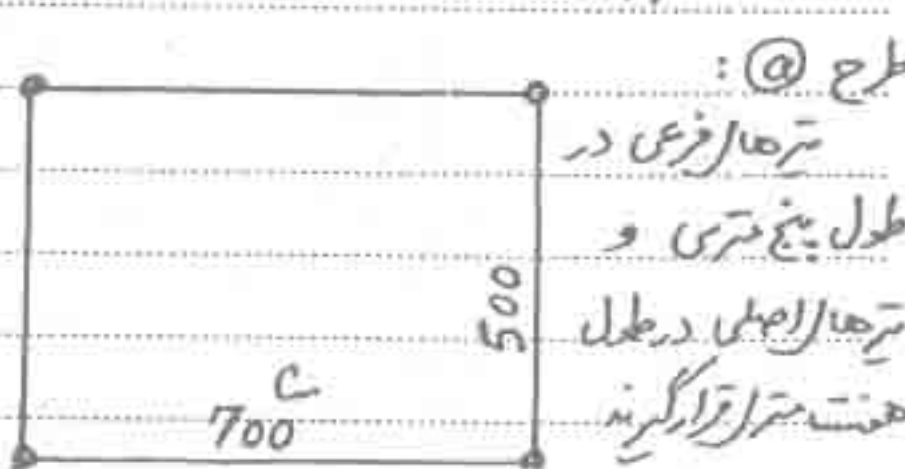 طرح ⓐ :
تیرهای فرعی در
طول پنج متری و
تیرهای اصلی در طول
هفت متری قرار گیرند
500
C
700